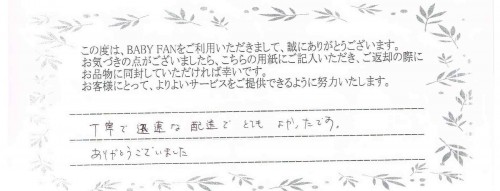 この度は、BABY FANをご利用いただきまして、誠にありがとうございます。
お気づきの点がございましたら、こちらの用紙にご記入いただき、ご返却の際に
お品物に同封していただければ幸いです。
お客様にとって、よりよいサービスをご提供できるように努力いたします。
丁寧で迅速な配送でとてもよかったです。
ありがとうございました